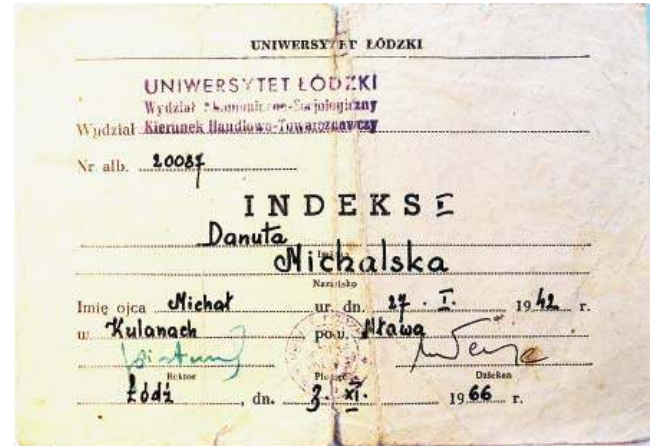 UNIWERSYTET ŁÓDZKI
UNIWERSYTET ŁÓDZKI
Wydział Ekonomiczno-Socjologiczny
Wydział Kierunek Handlowo-Towaroznawczy
Nr alb. 20087
INDEKS I
Danuta
Imię
Michalska
Nazwisko
Imię ojca Michał ur. dn. 27. I. 1942 r.
w Kulanach pow. Mława
Rektor Pieczęć Dziekan
Łódź, dn. 3. XI. 1966 r.